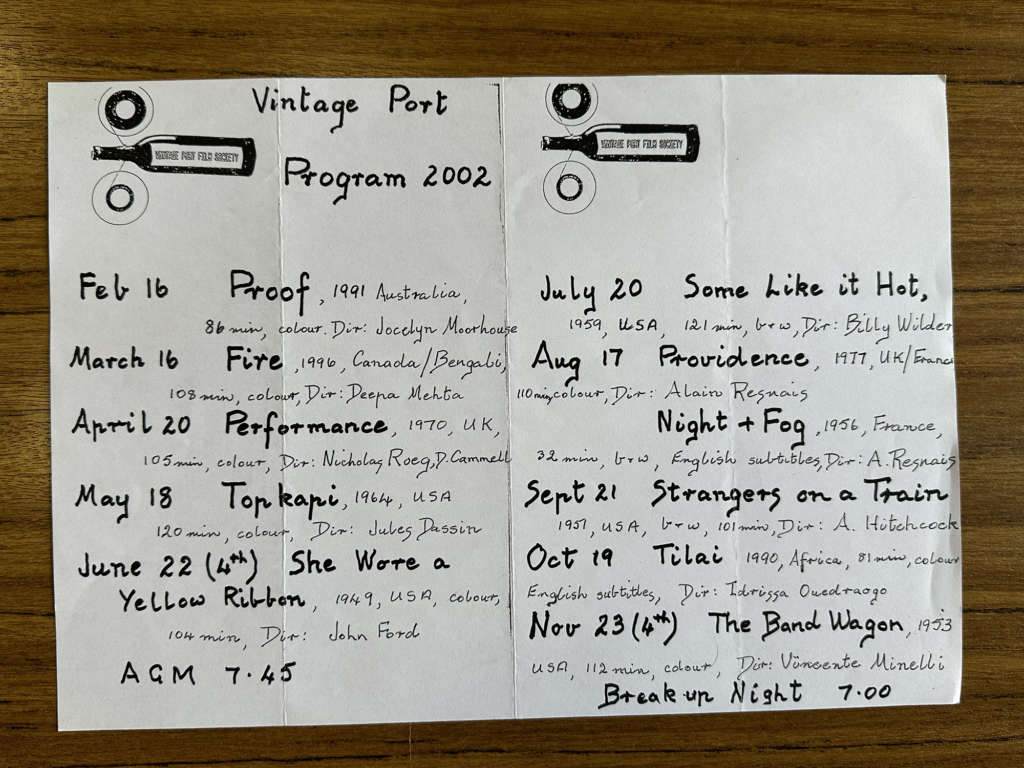 Vintage Port
VINTAGE PORT FILM SOCIETY
Program 2002
Feb 16 Proof, 1991 Australia,
86 min, colour. Dir: Jocelyn Moorhouse
March 16 Fire, 1996, Canada/Bengali,
108 min, colour, Dir: Deepa Mehta
April 20 Performance, 1970, UK,
105 min, colour, Dir: Nicholas Roeg, D. Cammell
May 18 Topkapi, 1964, USA
120 min, colour, Dir: Jules Dassin
June 22 (4th) She Wore a
Yellow Ribbon, 1949, USA, colour,
104 min, Dir: John Ford
AGM 7.45
VINTAGE PORT FILM SOCIETY
July 20 Some Like it Hot,
1959, USA, 121 min, b+w, Dir: Billy Wilder
Aug 17 Providence, 1977, UK/France
110 min, colour, Dir: Alain Resnais
Night + Fog, 1956, France,
32 min, b+w, English subtitles, Dir: A. Resnais
Sept 21 Strangers on a Train
1951, USA, b+w, 101 min, Dir: A. Hitchcock
Oct 19 Tilai 1990, Africa, 81 min, colour
English subtitles, Dir: Idrissa Ouedraogo
Nov 23 (4th) The Band Wagon, 1953
USA, 112 min, colour, Dir: Vincente Minelli
Break up Night 7.00